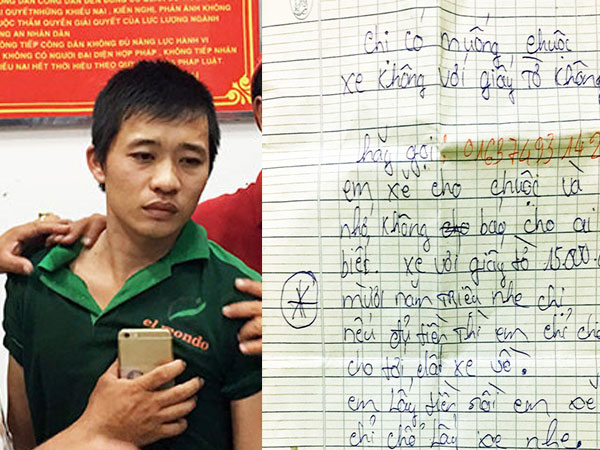 QUYẾT NHỮNG KHIẾU NẠI, KIẾN NGHỊ, PHẢN ÁNH KHÔNG
THUỘC THẨM QUYỀN GIẢI QUYẾT CỦA LỰC LƯỢNG
AN NHÂN DÂN
KHÔNG TIẾP CÔNG DÂN KHÔNG ĐỦ NĂNG LỰC HÀNH VI
KHÔNG CÓ NGƯỜI ĐẠI DIỆN HỢP PHÁP, KHÔNG TIẾP NHẬN
NẠI HẾT THỜI HIỆU THEO QUY CỦA PHÁP LUẬT.
el mondo
chị có muống chuộc
xe không với giấy tờ không
hãy gọi : 0163749314
em xẽ cho chuộc và
nhớ không báo cho ai
biết. xe với giấy tờ 15.000
mười năm triệu nhe chị
nếu đủ tiền thì em chỉ
cho tới lấy xe về.
em lấy tiền rồi em xẽ
chỉ chổ lấy xe nhe.